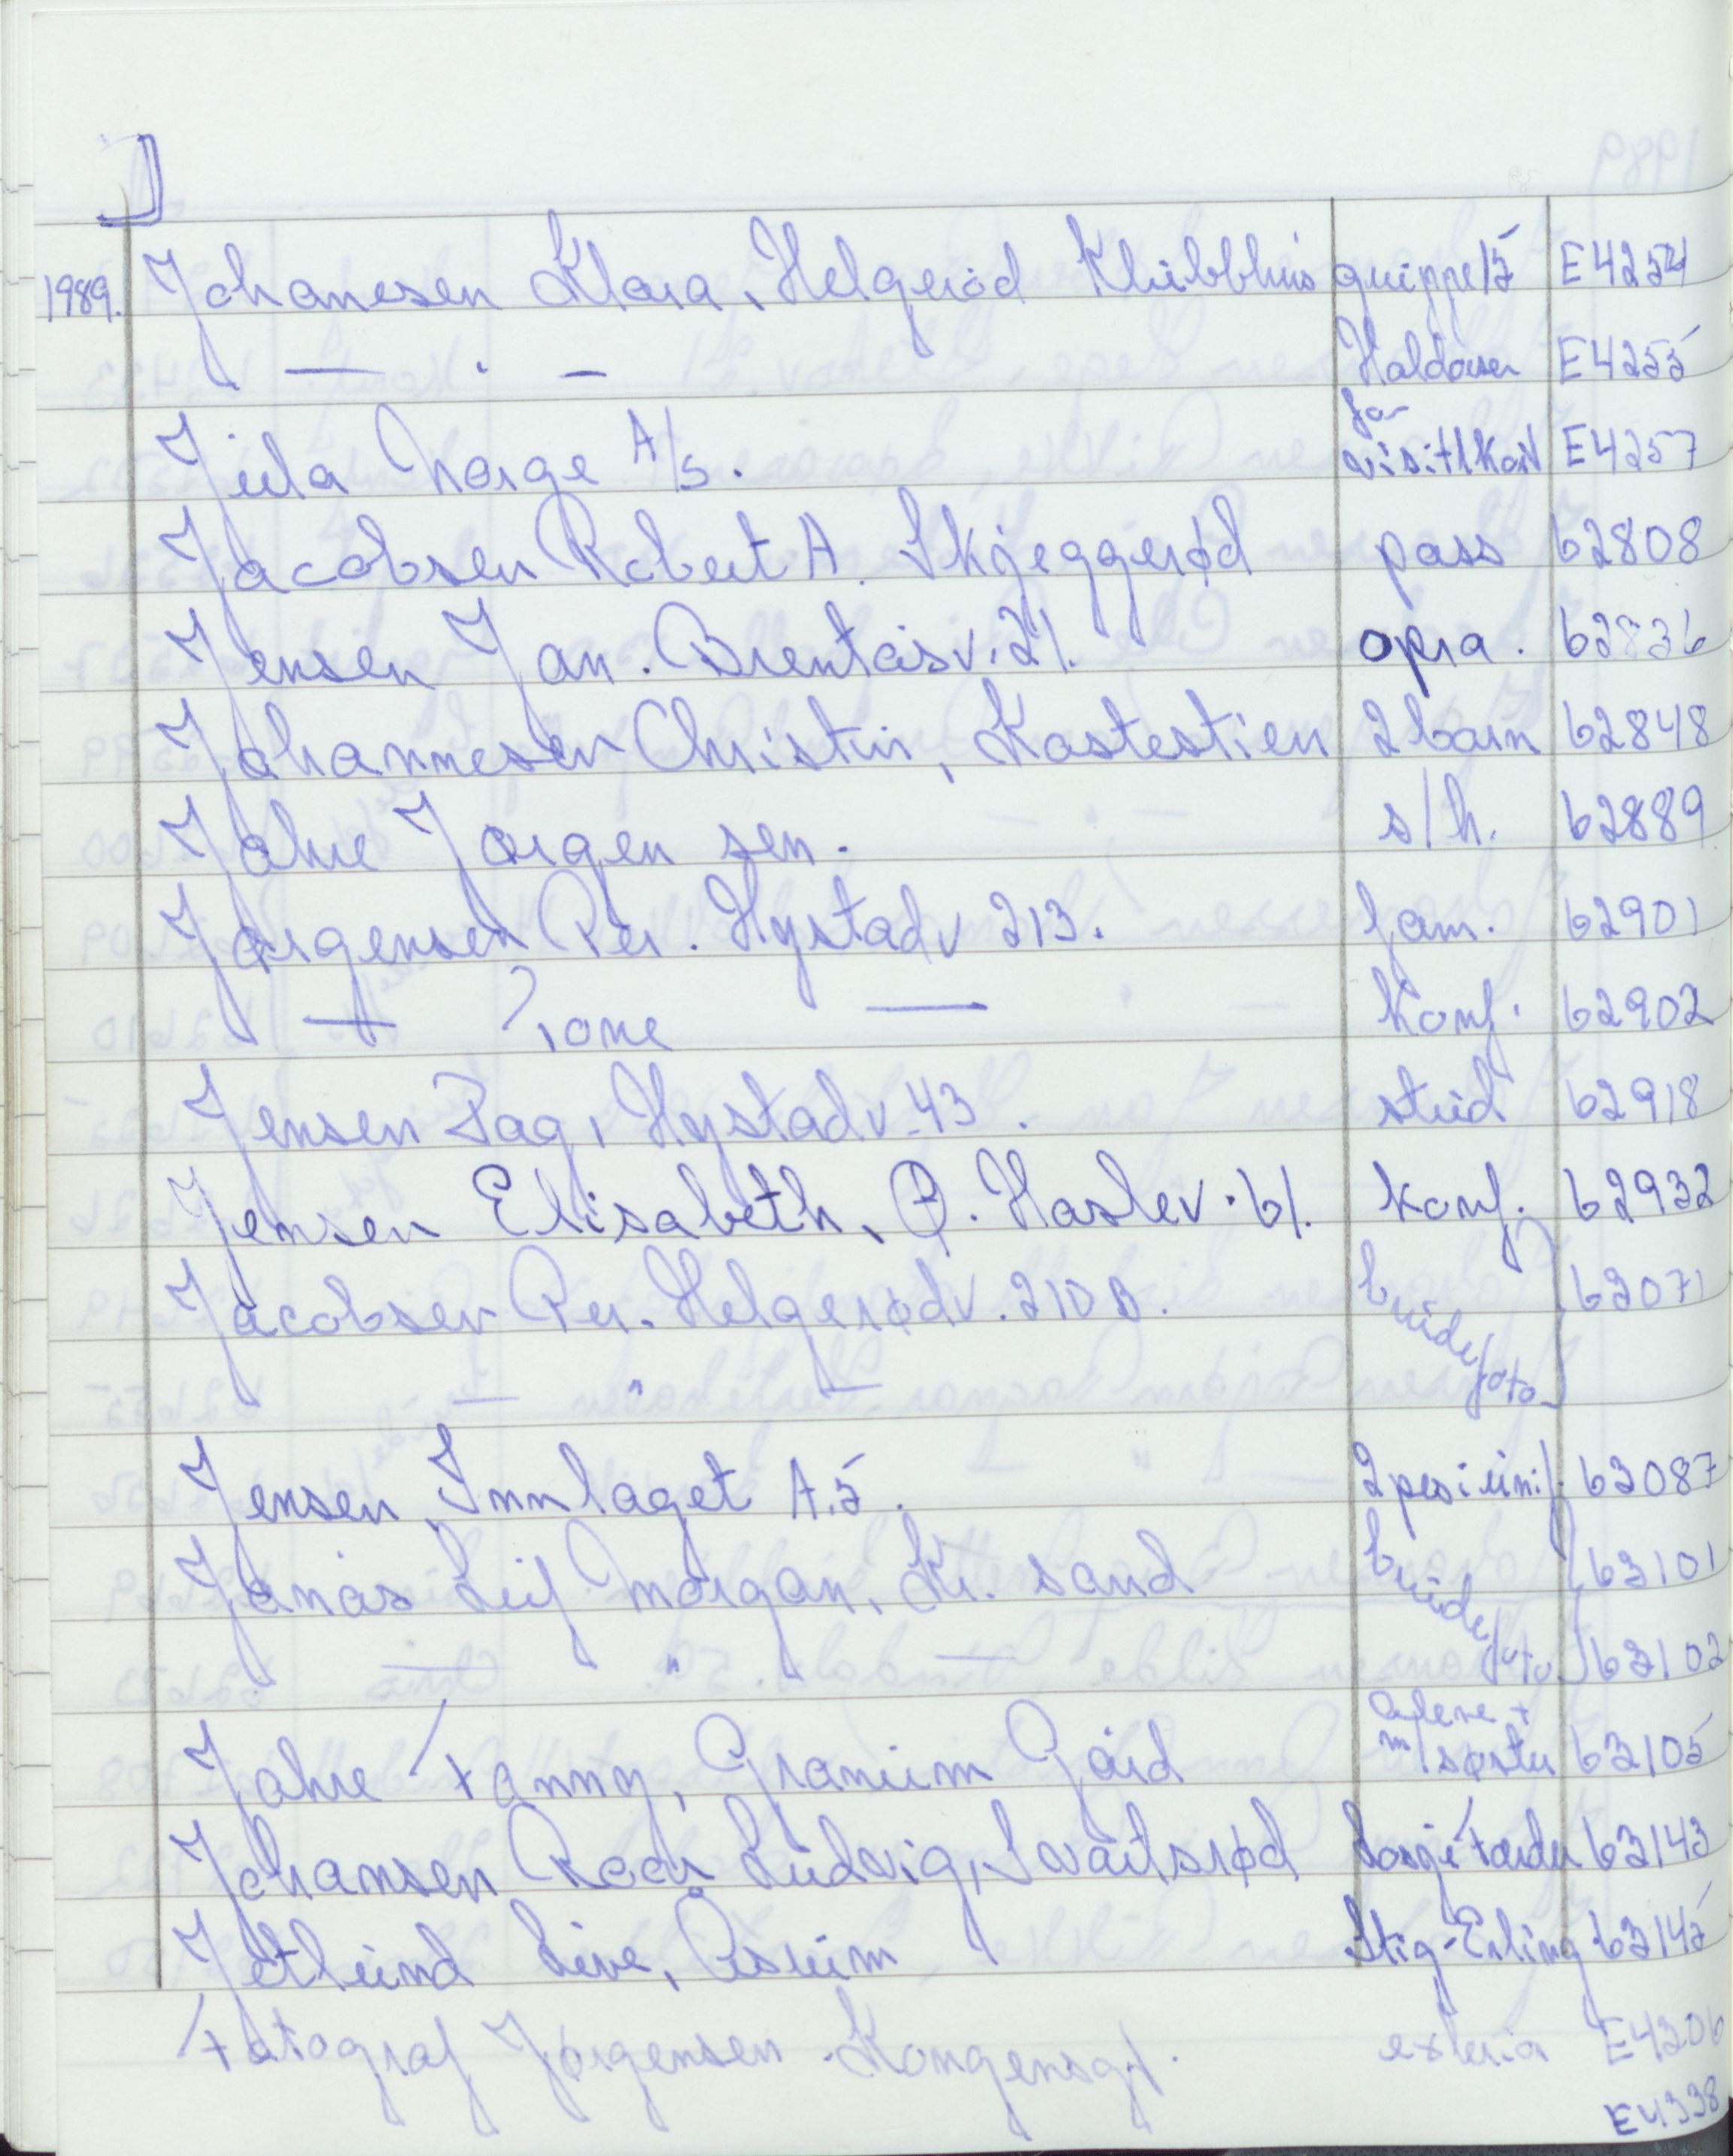 J
1989. Johanesen Klara, Helgerød Klubbhus gruppe 15 E4254
— . — Haldorsen E4255
Jula Norge A/S. for visittkort E4257
Jacobsen Robert A. Skjeggerød pass 62808
Jensen Jan. Brentåsv. 21. opra. 62836
Johannesen Christin, Kastestien 2 barn 62848
Jahre Jørgen sen. s/h. 62889
Jørgensen Per. Hystadv 213. fam. 62901
— Tone — konf. 62902
Jensen Dag, Hystadv. 43. stud 62918
Jensen Elisabeth, Ø. Haslev. 61. konf. 62932
Jacobsen Per. Helgerødv. 210 B. brudefoto 63071
— " —
Jensen, Innlaget A.S. 2 pers i unif. 63087
Jonas Leif Morgan, Kr. sand brudefoto 63101
— " — 63102
Jahre Fanny, Granum Gård alene + m/søster 63105
Johansen Roar Ludvig, Svartsrød 63143
Jetlund Live, Åsrum Stig-Erling 63145
Fotograf Jørgensen. Kongensgt. E4206
E4338